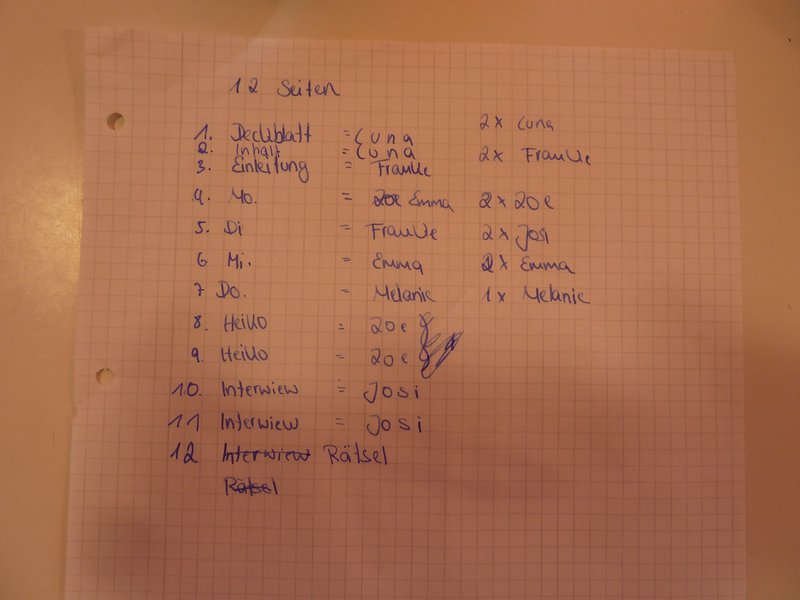 12 Seiten
1. Deckblatt = Luna
2. Inhalt = Luna
3. Einleitung = Frauke
4. Mo. = Zoe Emma
5. Di = Frauke
6 Mi. = Emma
7 Do. = Melanie
8. Heiko = Zoe
9. Heiko = Zoe
10. Interwiew = Josi
11 Interwiew = Josi
12 Interwiew Rätsel
Rätsel
2x Luna
2x Frauke
2x Zoe
2x Josi
2x Emma
1x Melanie